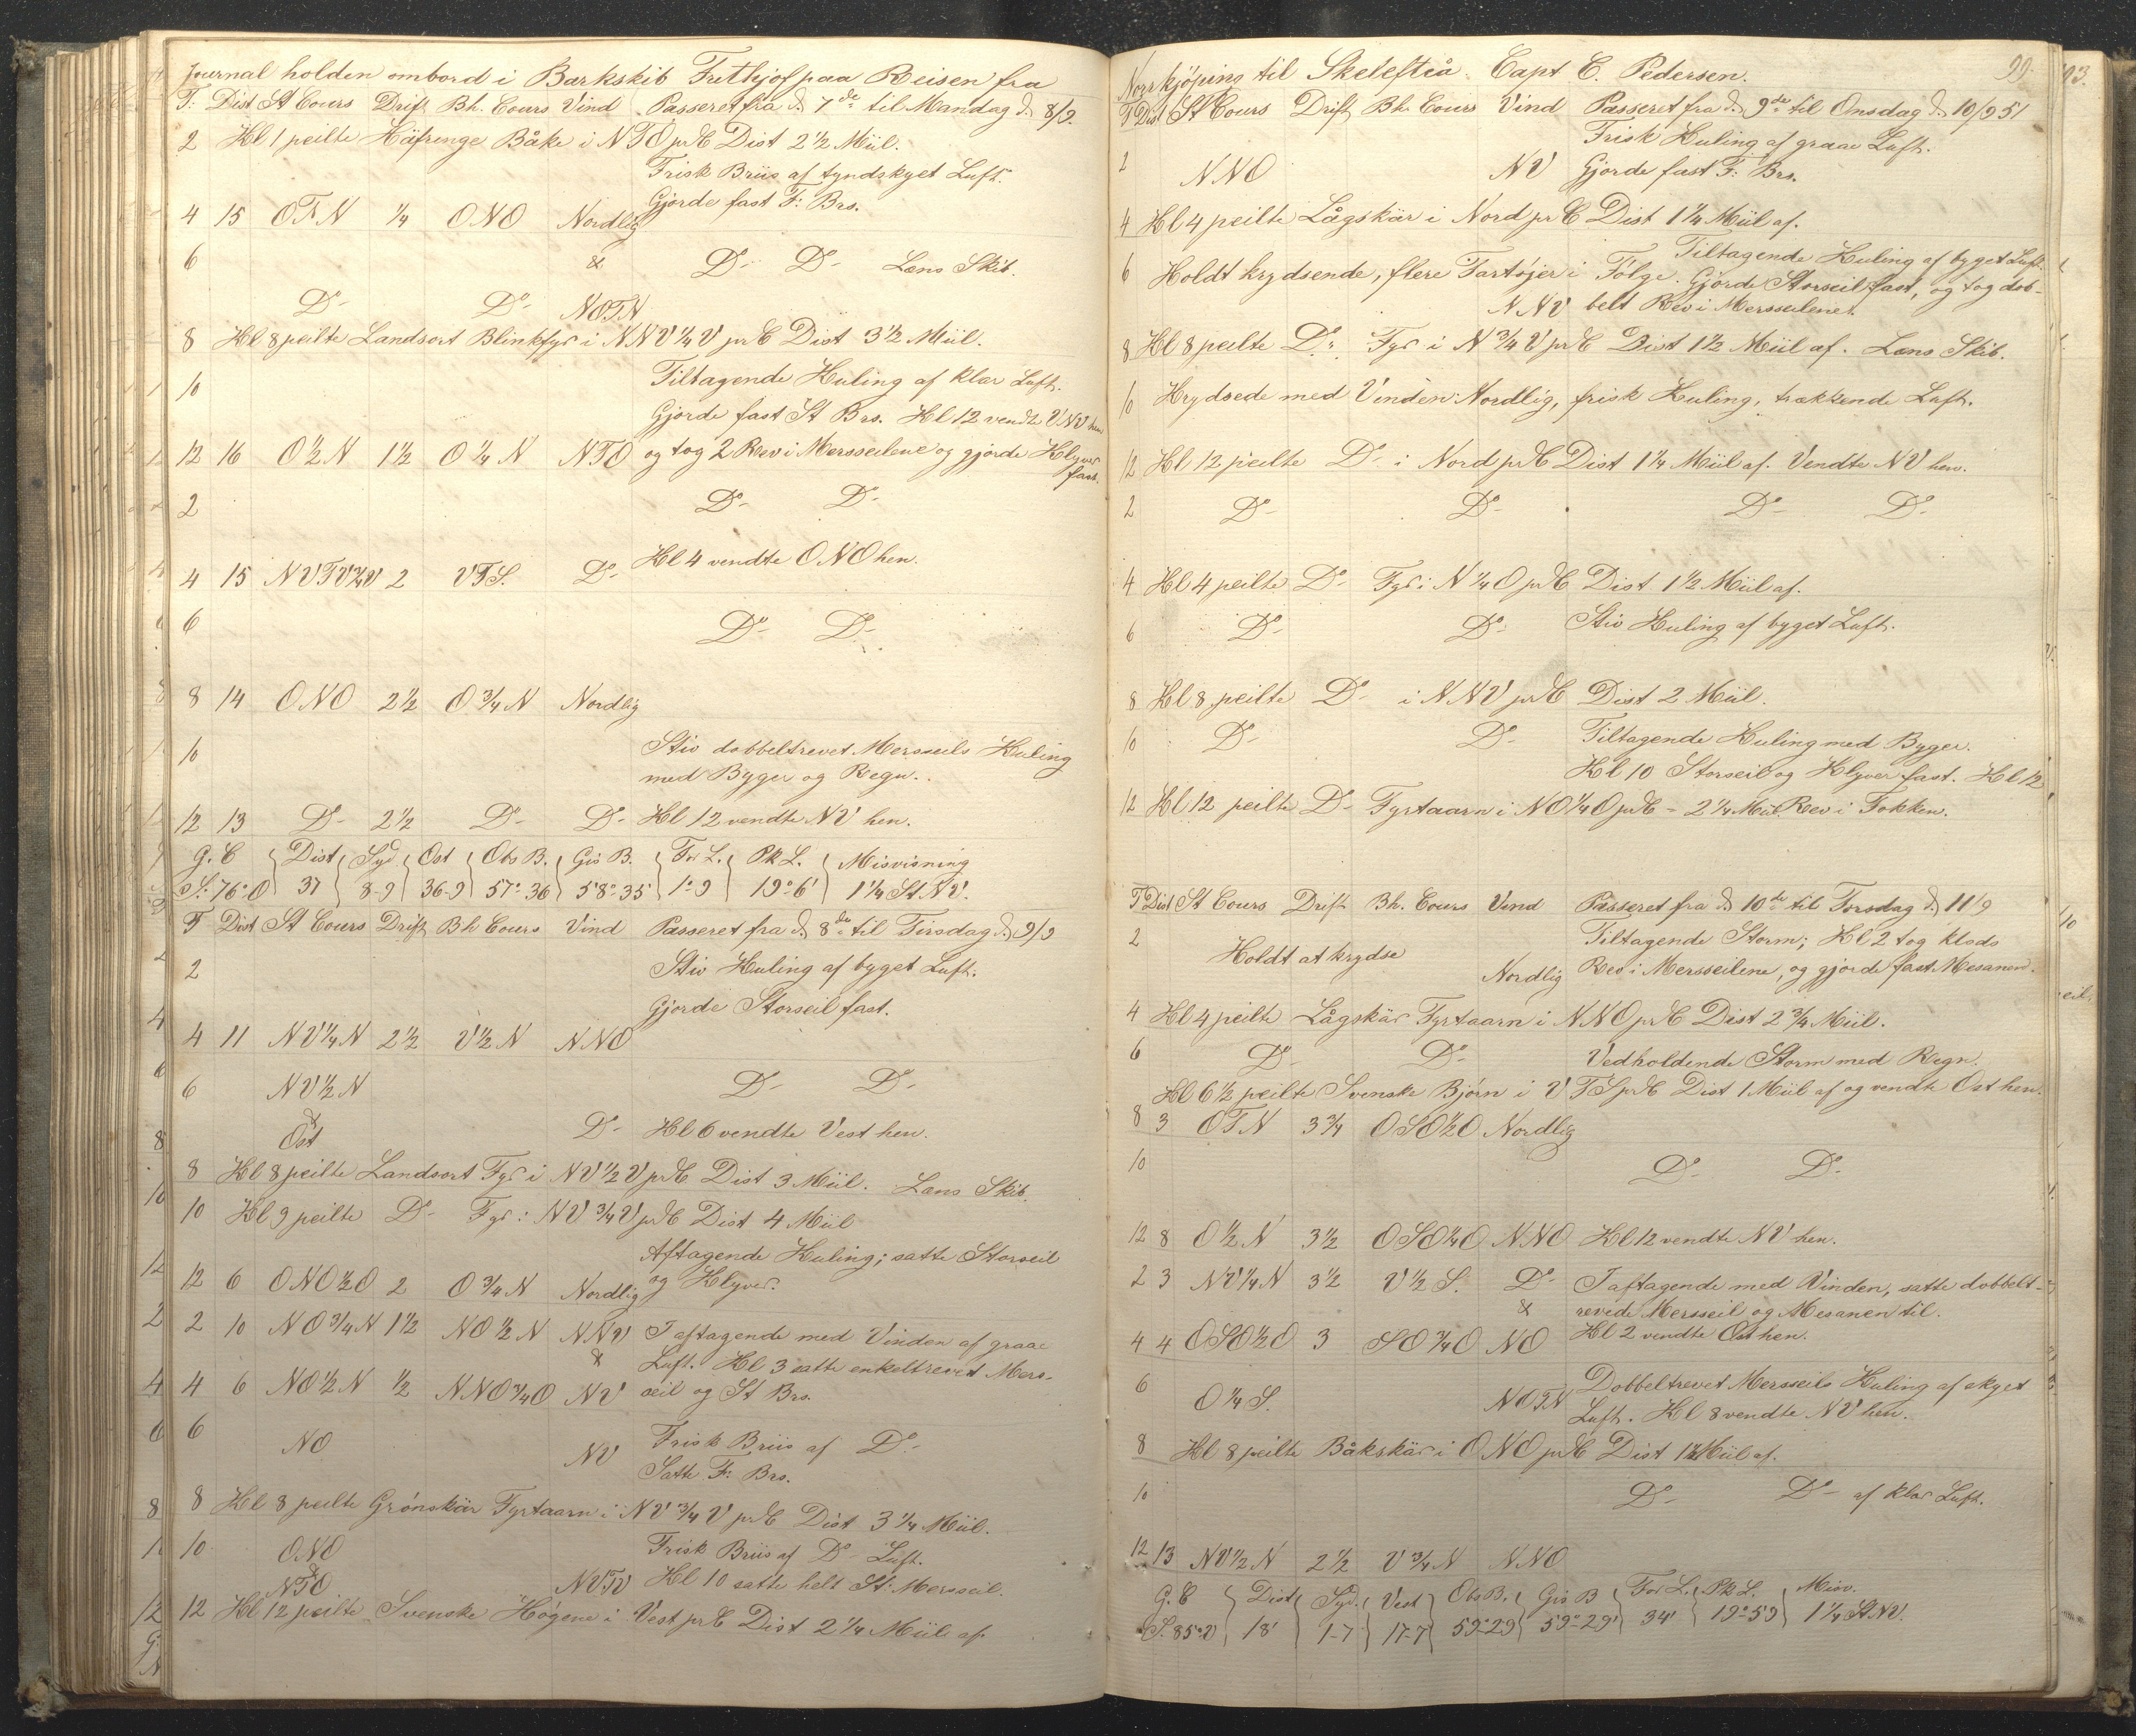 Journal holden ombord i Barkskib Frethjof paa Reisen fra
T: Dist St Cours Drift Bh. Cours Vind Passeret fra d. 7de til Mandag d. 8/9.
2 Kl 1 peilte Häfrenge Båke i NTO pr C Dist 2 1/2 Miil.
Frisk Briis af tyndskyet Luft.
Gjorde fast F: Brs.
4 15 OTN 1/4 ONO Nordlig
6 & Do- Do- Lens Skib.
Do- Do- NOTN
8 Kl 8 peilte Landsort Blinkfyr i NNV 1/4 V pr C Dist 3 1/2 Miil.
10 Tiltagende Kuling af klar Luft.
Gjorde fast St Brs. Kl 12 vendte VNV hen
12 16 O 1/2 N 1 1/2 O 1/4 N NTO og tog 2 Rev i Mersseilene og gjorde Klyver
fast.
2 Do- Do-
Kl 4 vendte ONO hen.
4 15 NVTV 1/2 V 2 VTS. Do-
6 Do- Do-
8 14 ONO 2 1/2 O 3/4 N Nordlig
10 Stiv dobbeltrevet Mersseils Kuling
med Byger og Regn.
12 13 Do- 2 1/2 Do- Do- Kl 12 vendte NV hen.
G. C Dist Syd Ost Obs B. Gis B. For L. Pk L. Misvisning
S. 76° O 37 8-9 36-9 57°-36 58°-35 1°-9 19°-6' 1 1/4 St. NV.
T Dist St Cours Drift Bh Cours Vind Passeret fra d. 8de til Tirsdag d. 9/9
2 Stiv Kuling af byget Luft.
Gjorde Storseil fast.
4 11 NV 1/4 N 2 1/2 V 1/2 N NNO
6 NV 1/2 N Do- Do-
&
Ost Do- Kl 6 vendte Vest hen.
8 Kl 8 peilte Landsort Fyr i NV 1/2 V pr C Dist 3 Miil. Lens Skib.
10 Kl 9 peilte Do- Fyr i NV 3/4 V pr C Dist 4 Miil
Aftagende Kuling; satte Storseil
12 6 ONO 1/2 O 2 O 3/4 N Nordlig og Klyver.
2 10 NO 3/4 N 1 1/2 NO 1/2 N NNV I aftagende med Vinden af graae
& Luft. Kl 3 satte enkeltrevet Mers-
4 6 NO 1/2 N 1/2 NNO 3/4 O NV seil og St Brs.
6 NO NV Frisk Briis af Do-
Satte F: Brs.
8 Kl 8 peilte Grönskär Fyrtaarn i NV 3/4 V pr C Dist 3 1/4 Miil.
10 ONO Frisk Briis af Do- Luft.
&
NTO NVTV Kl 10 satte helt St: Mersseil.
12 Kl 12 peilte Svenske Högene i Vest pr C Dist 2 1/4 Miil af
Norrkjöping til Skelefteå. Capt C. Pedersen. 99.
T Dist St Cours Drift Bh. Cours Vind Passeret fra d. 9de til Onsdag d. 10/9 51
Frisk Kuling af graae Luft.
2 NNO NV Gjorde fast F: Brs.
4 Kl 4 peilte Lågskär i Nord pr C Dist 1 1/4 Miil af.
Tiltagende Kuling af byget Luft.
6 Holdt krydsende, flere Fartöjer i Fölge. Gjorde Storseil fast, og tog dob-
NNV belt Rev i Mersseilene.
8 Kl 8 peilte Do- Fyr i N 3/4 V pr C Dist 1 1/2 Miil af. Lens Skib.
10 Krydsede med Vinden Nordlig, frisk Kuling, trækkende Luft.
12 Kl 12 peilte Do- i Nord pr C Dist 1 1/4 Miil af. Vendte NV hen.
2 Do- Do- Do- Do-
4 Kl 4 peilte Do- Fyr i N 1/4 O pr C Dist 1 1/2 Miil af.
6 Do- Do- Stiv Kuling af byget Luft.
8 Kl 8 peilte Do- i NNV pr C Dist 2 Miil.
10 Do- Do- Tiltagende Kuling med Byger.
Kl 10 Storseil og Klyver fast. Kl 12
12 Kl 12 peilte Do- Fyrtaarn i NO 1/4 O pr C - 2 1/4 Miil. Rev i Fokken.
T Dist St Cours Drift Bh. Cours Vind Passeret fra d. 10de til Torsdag d. 11/9
2 Tiltagende Storm; Kl 2 tog klods
Holdt at krydse Nordlig Rev i Mersseilene, og gjorde fast Mesanen.
4 Kl 4 peilte Lågskär Fyrtaarn i NNO pr C Dist 2 3/4 Miil.
6 Do- Do- Vedholdende Storm med Regn.
Kl 6 1/2 peilte Svenske Björn i VTS pr C Dist 1 Miil af og vendte Ost hen.
8 3 OTN 3 3/4 OSO 1/2 O Nordlig
10 Do- Do-
12 8 O 1/2 N 3 1/2 OSO 1/4 O NNO Kl 12 vendte NV hen.
2 3 NV 1/4 N 3 1/2 V 1/2 S. Do- I aftagende med Vinden, satte dobbelt-
& revede Mersseil og Mesanen til.
4 4 OSO 1/2 O 3 SO 3/4 O NO Kl 2 vendte Ost hen.
6 O 1/4 S. NOTN Dobbeltrevet Mersseils Kuling af skyet
Luft. Kl 8 vendte NV hen.
8 Kl 8 peilte Båkskär i ONO pr C Dist 1 1/2 Miil af.
10 Do- Do- af klar Luft.
12 13 NV 1/2 N 2 1/2 V 3/4 N NNO
G. C Dist Syd. Vest Obs B. Gis B For L. Pk L. Misv.
S. 85° V 18' 1-7 17-7 59°-29 59°-29' 34' 19°-59 1 1/4 St NV.